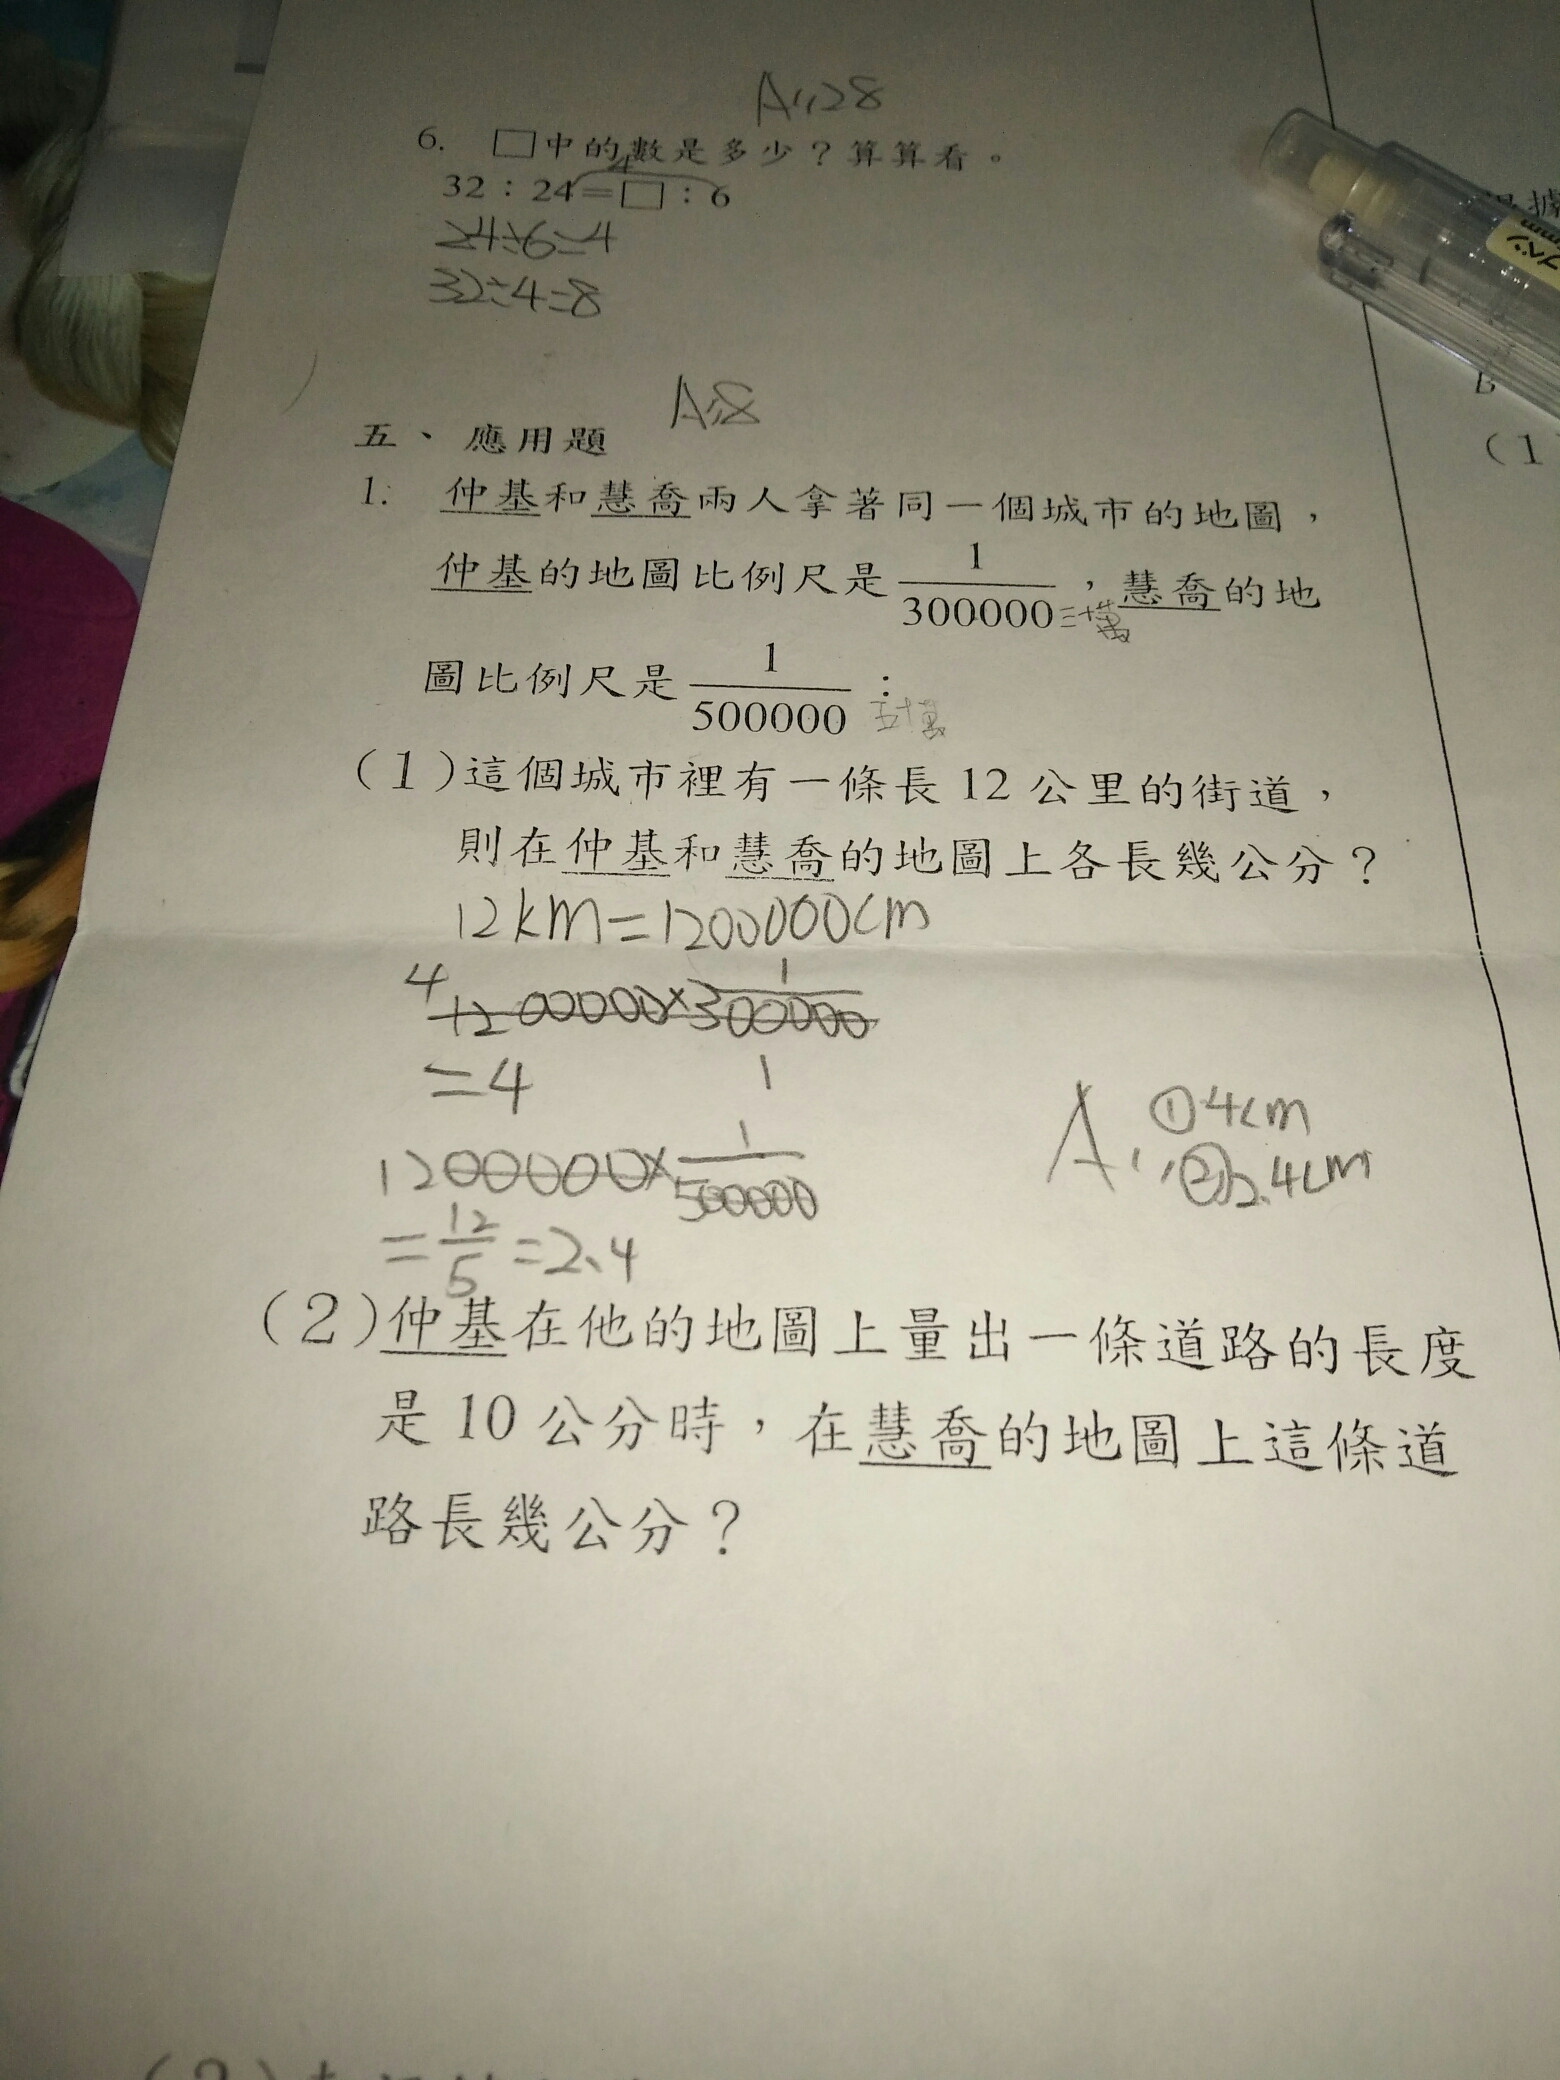 A:28
6. □中的數是多少？算算看。
4
32：24＝□：6
24÷6=4
32÷4=8
A:8
五、應用題
1. 仲基和慧喬兩人拿著同一個城市的地圖，
仲基的地圖比例尺是 1/300000 三十萬，慧喬的地
圖比例尺是 1/500000 ： 五十萬
(1)這個城市裡有一條長 12 公里的街道，
則在仲基和慧喬的地圖上各長幾公分？
12km=1200000cm
4 1200000×1/300000 1
=4
A: ①4cm
②2.4cm
1200000×1/500000
=12/5=2.4
(2)仲基在他的地圖上量出一條道路的長度
是 10 公分時，在慧喬的地圖上這條道
路長幾公分？
根據
B
(1